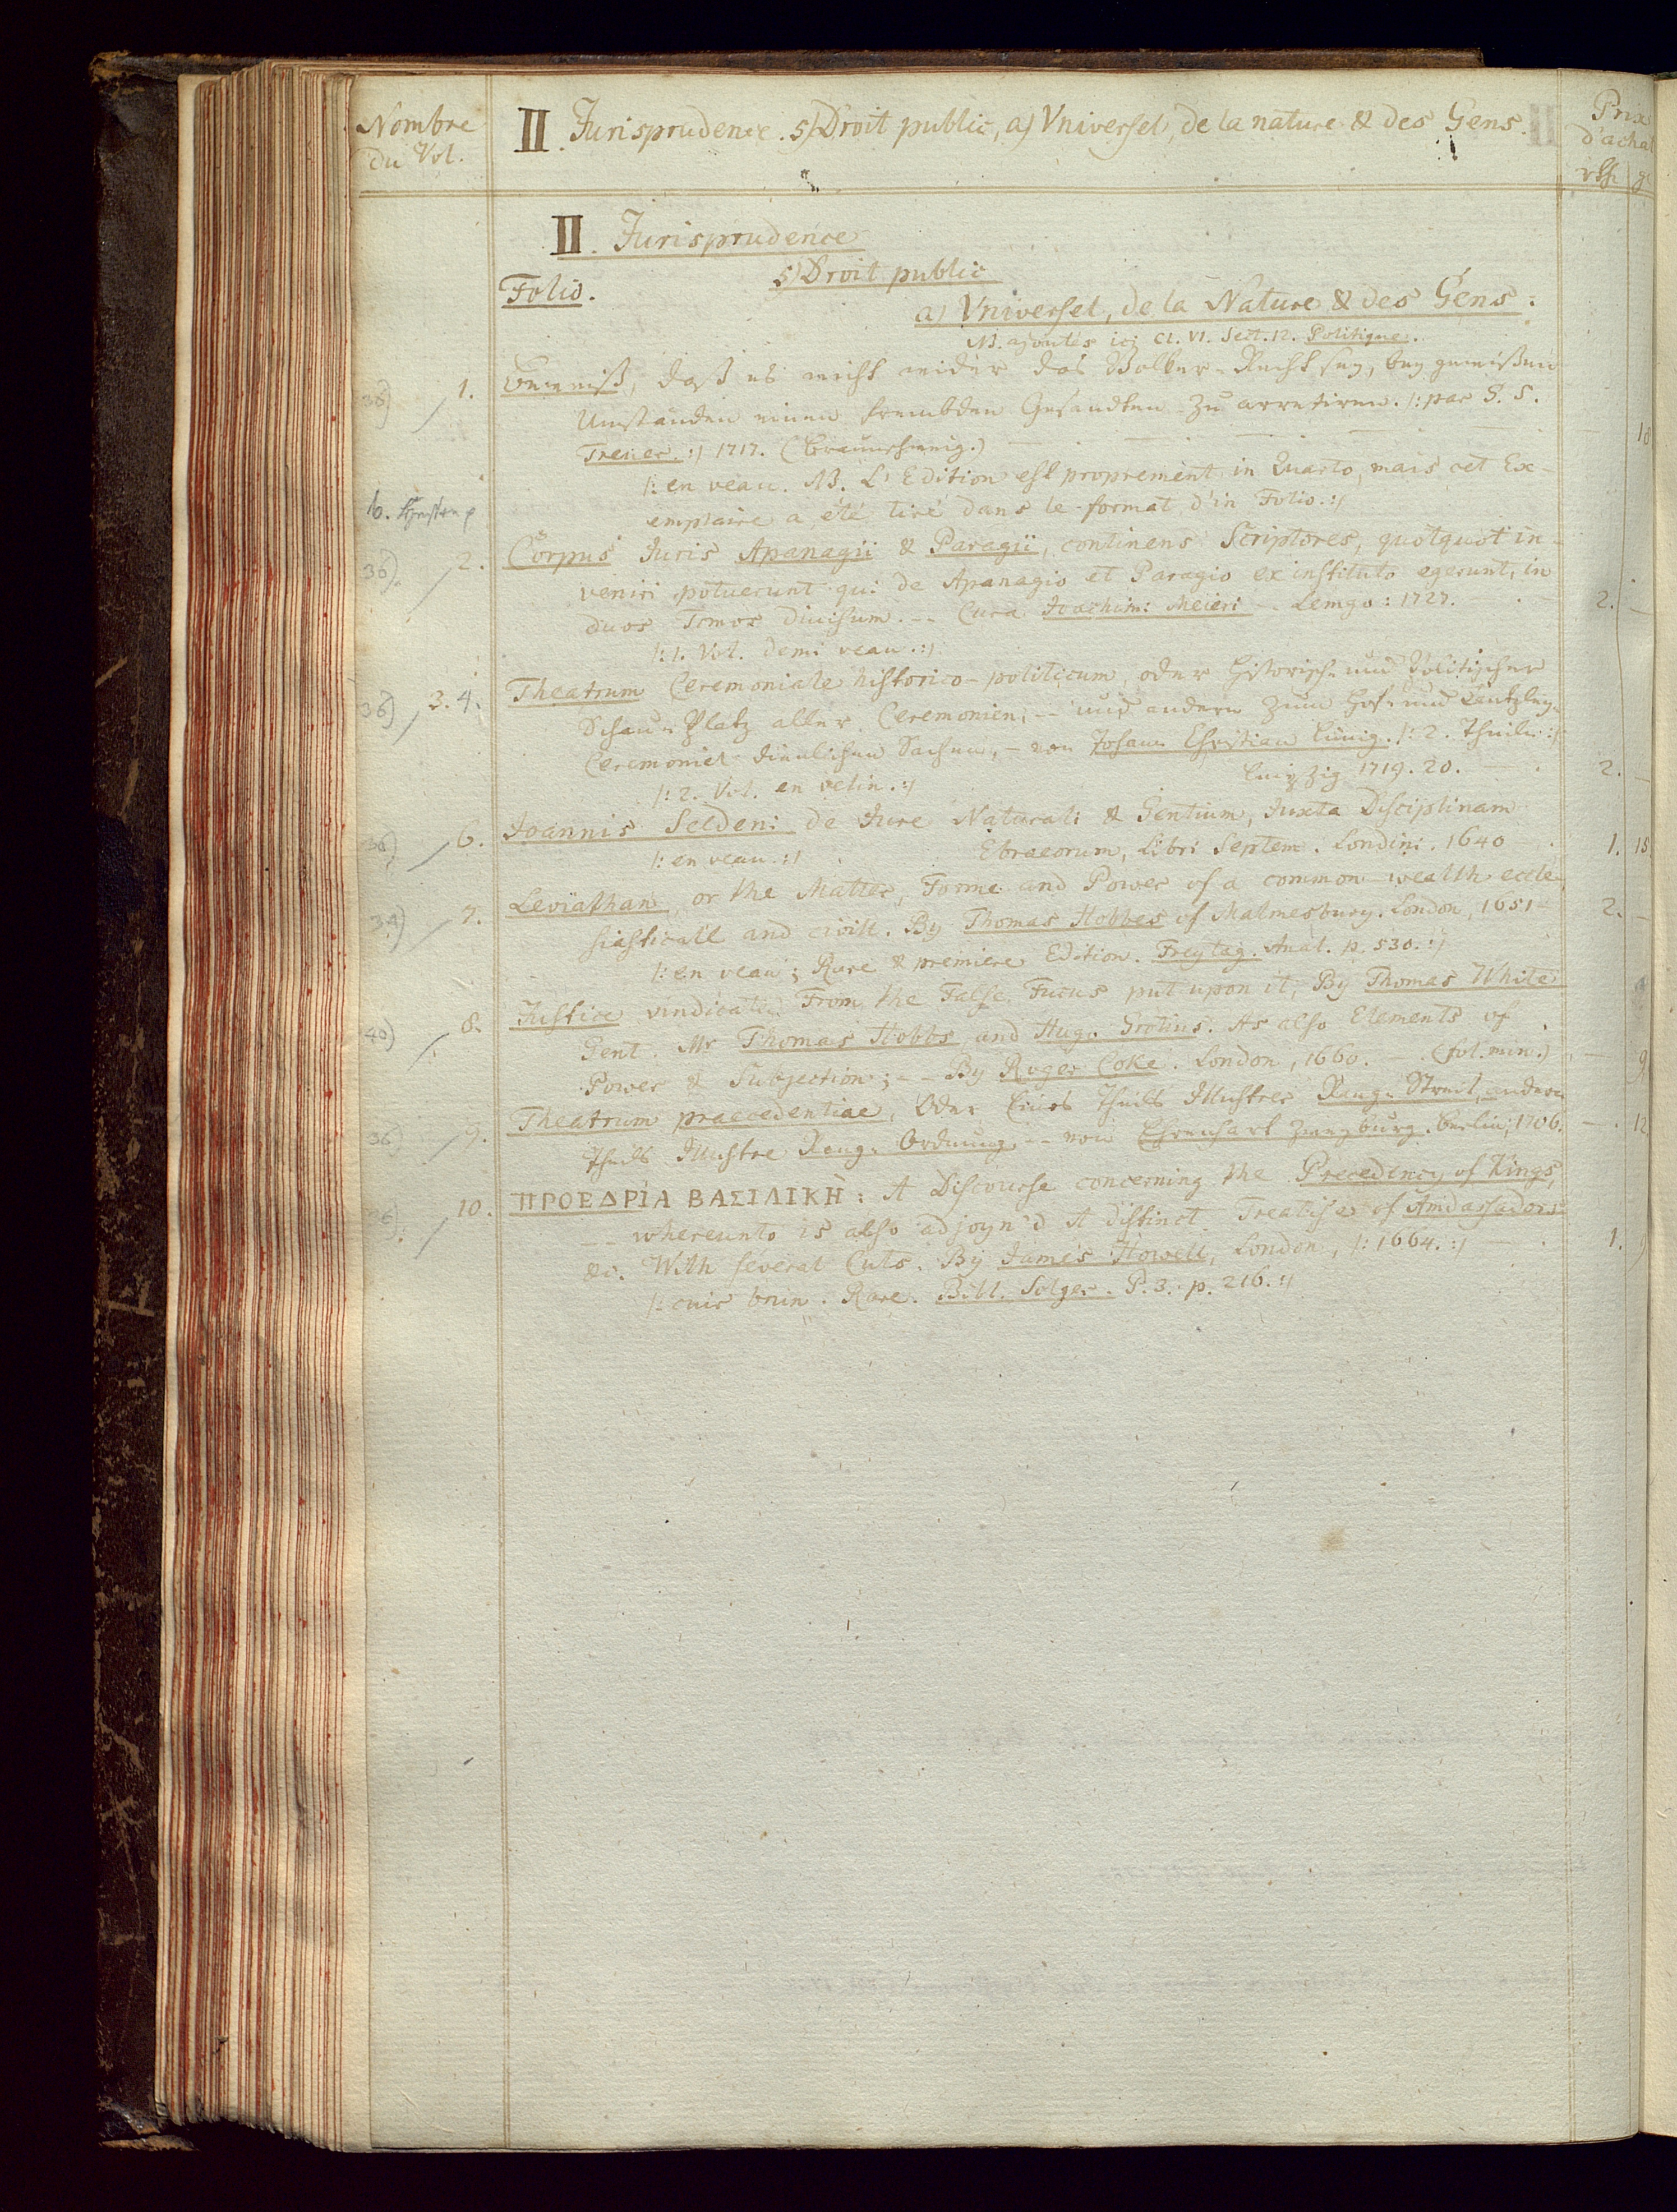 Nombre
du Vol.
II. Jurisprudence. 5) Droit public, a) Vniversel, de la nature & des Gens.
Prix
d'achat
rth. gr
II. Jurisprudence
5) Droit public
Folio.
a) Vniversel, de la Nature & des Gens:
NB. ajoutés ici Cl. VI. Sect. 12. Politique.
36) 1. Beweiß, daß es nicht wider das Völker-Recht sey, bey gewißen
Umständen einen frembden Gesandten zu arretiren. /: par G. S.
Treuer. :/ 1717. (Braunschweig.) — — — 18
/: en veau. NB. L'Edition est proprement in Quarto, mais cet Ex-
emplaire a été tiré dans le format d'in Folio. :/
36) 2. Corpus Juris Apanagii & Paragii, continens Scriptores, quotquot in-
veniri potuerunt qui de Apanagio et Paragio ex instituto egerunt, in
duos Tomos divisum. -- Cura Joachimi Meieri - Lemgo: 1727. — 2. —
/: 1. Vol. demi veau. :/
36) 3. 4. Theatrum Ceremoniale historico-politicum, oder Historisch- und Politischer
Schau-Platz aller Ceremonien, -- und andern zum Hof- und Cantzley-
Ceremoniel dienlichen Sachen, - von Johann Christian Lünig. /: 2. Theile :/
Leipzig 1719. 20. — 2. —
/: 2. Vol. en velin. :/
36) 6. Joannis Seldeni de Jure Naturali & Gentium, Juxta Disciplinam
/: en veau. :/ Ebraeorum, Libri Septem. Londini. 1640 1. 18.
34) 7. Leviathan, or the Matter, Forme and Power of a common-wealth eccle-
siasticall and civill. By Thomas Hobbes of Malmesbury. London, 1651 2. —
/: en veau; Rare & premiere Edition. Freytag. Anal. p. 530. :/
40) 8. Justice vindicated From the False Fucus put upon it, By Thomas White
Gent. Mr Thomas Hobbs and Hugo Grotius. As also Elements of
Power & Subjection; -- By Roger Coke. London, 1660. — (fol. min.) — 9
36) 9. Theatrum praecedentiae, Oder Eines Theils Illustrer Rang-Streit, andern
Theils Illustre Rang-Ordnung -- von Ehrenhart Zweyburg. Berlin, 1706. — 12
36) 10. ΠΡΟΕΔΡΊΑ ΒΑΣΙΛΙΚΗ: A Discourse concerning the Precedency of Kings,
-- whereunto is also adjoyn'd A distinct Treatise of Ambassadors
&c. With several Cuts. By James Howell, London, /: 1664. :/ — 1.
/: cuir brun. Rare. Bibl. Solger. P. 3. p. 216. :/